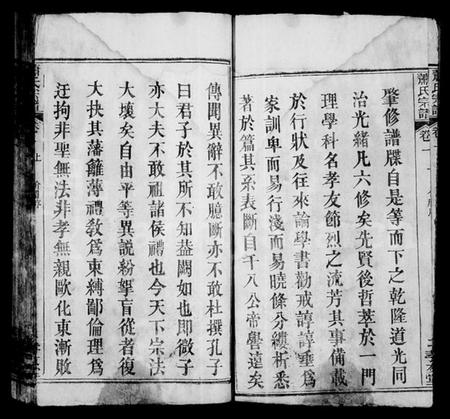 蕭氏宗譜
卷一
肇修譜牒自是等而下之乾隆道光同
治光緒凡六修矣先賢後哲萃於一門
理學科名孝友節烈之流芳其事備載
於行狀及往來論學書勸戒諄諄垂為
家訓卑而易行淺而易曉條分縷析悉
著於篇其系表斷自千八公帝學遠矣
傳聞異辭不敢臆斷亦不敢杜撰孔子
曰君子於其所不知葢闕如也即微子
亦大夫不敢祖諸侯禮也今天下宗法
大壞矣自由平等異說紛挐盲從者復
大抉其藩籬薄禮教為束縛鄙倫理為
迂拘非聖無法非孝無親歐化東漸敗